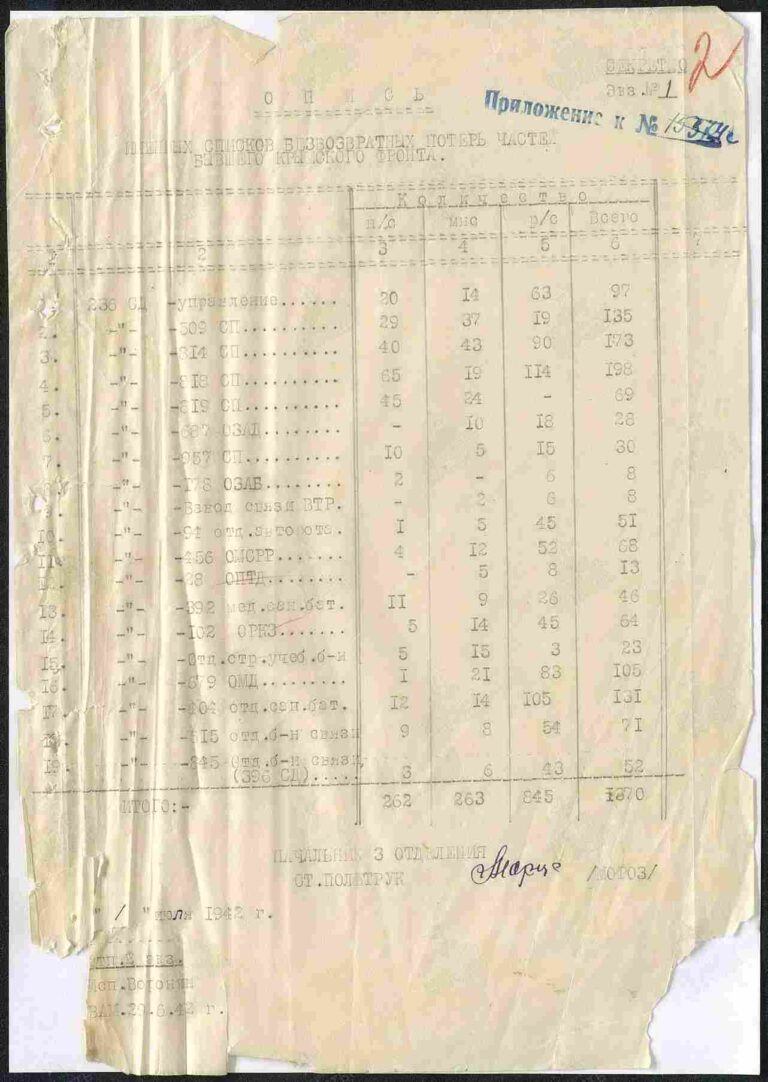 СЕКРЕТНО
2
Экз.№ 1
О П И С Ь
Приложение к №
ИМЕННЫХ СПИСКОВ БЕЗВОЗВРАТНЫХ ПОТЕРЬ ЧАСТЕЙ
БЫВШЕГО КРЫМСКОГО ФРОНТА.
К о л и ч е с т в о
н/с мнс р/с Всего
2 3 4 5 6 7
236 СД -управление....... 20 14 63 97
2. -"- -509 СП.......... 29 37 19 135
3. -"- -814 СП.......... 40 43 90 173
4. -"- -818 СП.......... 65 19 114 198
5. -"- -819 СП.......... 45 24 - 69
6. -"- -687 ОЗАД......... - 10 18 28
7. -"- -957 СП.......... 10 5 15 30
8. -"- -178 ОЗАБ......... 2 - 6 8
9. -"- -Взвод связи ВТР. - 2 6 8
10. -"- -94 отд.авторота. 1 5 45 51
11. -"- -456 ОМСРР....... 4 12 52 68
12. -"- -28 ОПТД......... - 5 8 13
13. -"- -392 мед.сан.бат. 11 9 26 46
14. -"- -102 ОРКЗ....... 5 14 45 64
15. -"- -Отд.стр.учеб.б-н 5 15 3 23
16. -"- -679 ОМД......... 1 21 83 105
17. -"- -404 отд.сап.бат. 12 14 105 131
18. -"- -615 отд.б-н связи 9 8 54 71
19. -"- -845 Отд.б-н связи,
(396 СД)..... 3 6 43 52
ИТОГО:- 262 263 845 1370
НАЧАЛЬНИК 3 ОТДЕЛЕНИЯ
СТ.ПОЛИТРУК /МОРОЗ/
" 1 " июля 1942 г.
отп.2 экз.
Исп.Воронин
ВАМ.29.6.42 г.